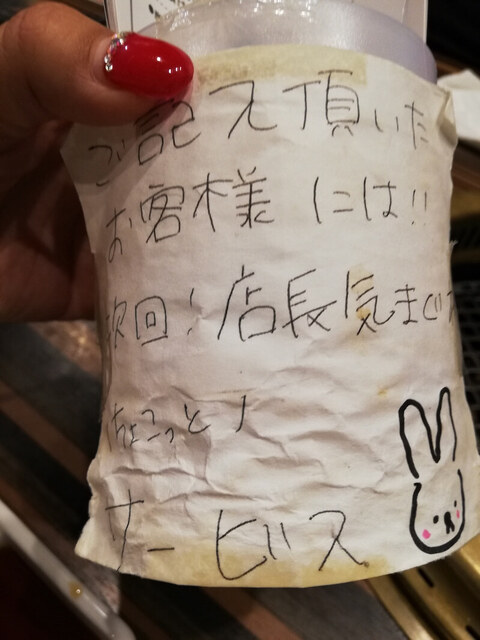 ご記入頂いた
お客様には!!
次回!店長気まぐれ
ちょこっと!
サービス